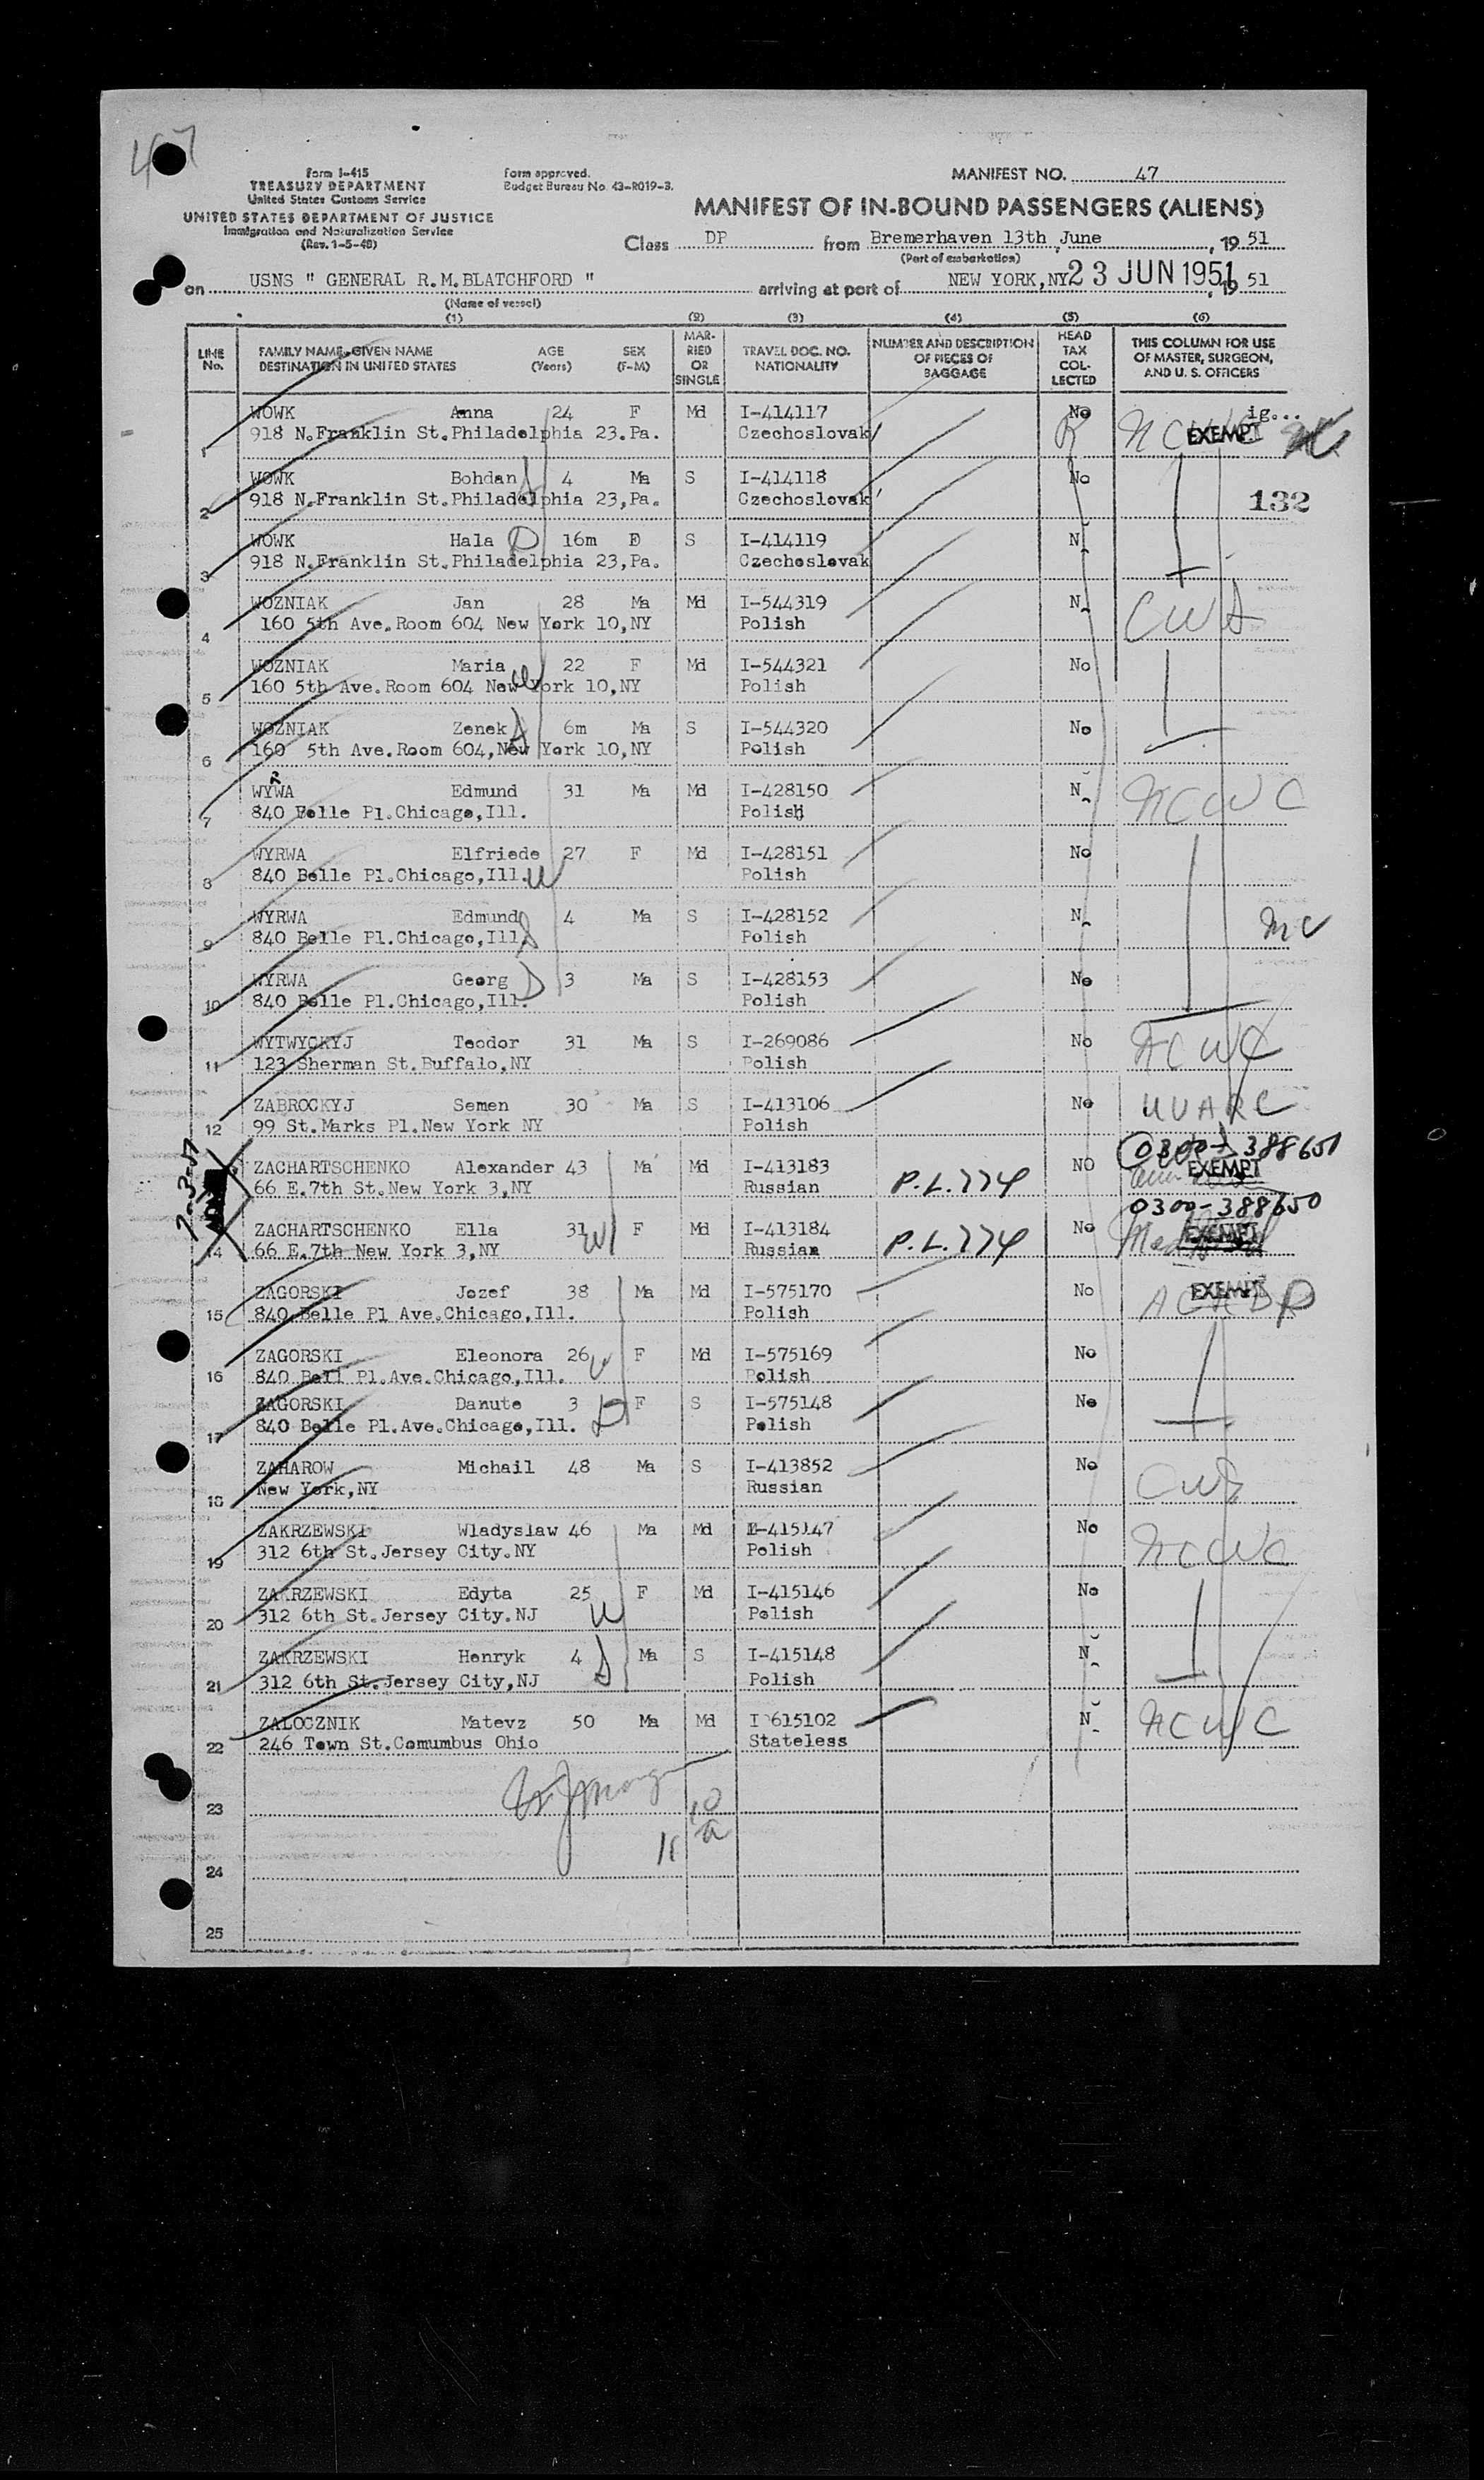 47
Form I-415
TREASURY DEPARTMENT
United States Customs Service
UNITED STATES DEPARTMENT OF JUSTICE
Immigration and Naturalization Service
(Rev. 1-5-48)
Form approved.
Budget Bureau No. 43-R019-3.
MANIFEST NO. 47
MANIFEST OF IN-BOUND PASSENGERS (ALIENS)
Class DP from Bremerhaven 13th June, 19 51
(Port of embarkation)
on USNS " GENERAL R.M.BLATCHFORD " arriving at port of NEW YORK,NY 23 JUN 1951, 19 51
(Name of vessel)
(1) (2) (3) (4) (5) (6)
LINE No. FAMILY NAME-GIVEN NAME DESTINATION IN UNITED STATES AGE (Years) SEX (F-M) MARRIED OR SINGLE TRAVEL DOC. NO. NATIONALITY NUMBER AND DESCRIPTION OF PIECES OF BAGGAGE HEAD TAX COLLECTED THIS COLUMN FOR USE OF MASTER, SURGEON, AND U. S. OFFICERS
WOWK Anna 24 F Md I-414117 No ig...
1 918 N.Franklin St.Philadelphia 23.Pa. Czechoslovak EXEMPT
WOWK Bohdan 4 Ma S I-414118 No
2 918 N.Franklin St.Philadelphia 23,Pa. Czechoslovak 132
WOWK Hala D 16m S I-414119 N
3 918 N.Franklin St.Philadelphia 23,Pa. Czechoslovak
WOZNIAK Jan 28 Ma Md I-544319 N
4 160 5th Ave.Room 604 New York 10,NY Polish CWS
WOZNIAK Maria 22 F Md I-544321 No
5 160 5th Ave.Room 604 New York 10,NY Polish
WOZNIAK Zenek 6m Ma S I-544320 No
6 160 5th Ave.Room 604,New York 10,NY Polish
WYRWA Edmund 31 Ma Md I-428150 N
7 840 Belle Pl.Chicago,Ill. Polish NCWC
WYRWA Elfriede 27 F Md I-428151 No
8 840 Belle Pl.Chicago,Ill. W Polish
WYRWA Edmund 4 Ma S I-428152 N
9 840 Belle Pl.Chicago,Ill. Polish
WYRWA Georg D 3 Ma S I-428153 No
10 840 Belle Pl.Chicago,Ill. Polish
WYTWYCKYJ Teodor 31 Ma S I-269086 No
11 123 Sherman St.Buffalo,NY Polish NCWC
ZABROCKYJ Semen 30 Ma S I-413106 No
12 99 St.Marks Pl.New York NY Polish UUARC
0300-388651
ZACHARTSCHENKO Alexander 43 Ma Md I-413183 NO EXEMPT
66 E.7th St.New York 3,NY Russian P.L.774
0300-388650
ZACHARTSCHENKO Ella 31 W F Md I-413184 No EXEMPT
14 66 E.7th New York 3,NY Russian P.L.774
ZAGORSKI Jozef 38 Ma Md I-575170 No EXEMPT
15 840 Belle Pl Ave.Chicago,Ill. Polish
ZAGORSKI Eleonora 26 W F Md I-575169 No
16 840 Bell Pl.Ave.Chicago,Ill. Polish
ZAGORSKI Danute 3 F S I-575148 No
17 840 Belle Pl.Ave.Chicago,Ill. D Polish
ZAHAROW Michail 48 Ma S I-413852 No
18 New York,NY Russian CWS
ZAKRZEWSKI Wladyslaw 46 Ma Md I-415147 No
19 312 6th St.Jersey City.NY Polish NCWC
ZAKRZEWSKI Edyta 25 F Md I-415146 No
20 312 6th St.Jersey City.NJ W Polish
ZAKRZEWSKI Henryk 4 Ma S I-415148 N
21 312 6th St.Jersey City,NJ Polish
ZALOCZNIK Matevz 50 Ma Md I 615102 N
22 246 Town St.Comumbus Ohio Stateless NCWC
23
24
25